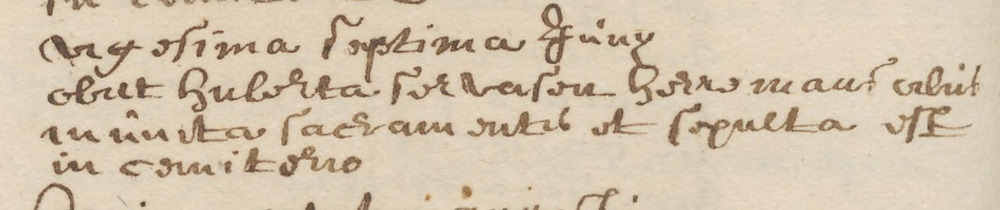 vigesima septima Junij
obiit huberta servasen herremans obiit
munita sacramentis et sepulta est
in cemiterio